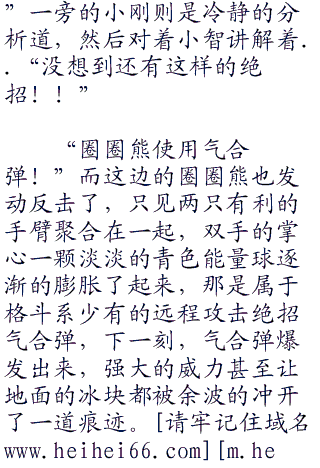 ”一旁的小刚则是冷静的分
析道，然后对着小智讲解着.
.“没想到还有这样的绝
招！！”
“圈圈熊使用气合
弹！”而这边的圈圈熊也发
动反击了，只见两只有利的
手臂聚合在一起，双手的掌
心一颗淡淡的青色能量球逐
渐的膨胀了起来，那是属于
格斗系少有的远程攻击绝招
气合弹，下一刻，气合弹爆
发出来，强大的威力甚至让
地面的冰块都被余波的冲开
了一道痕迹。[请牢记住域名
www.heihei66.com][m.he